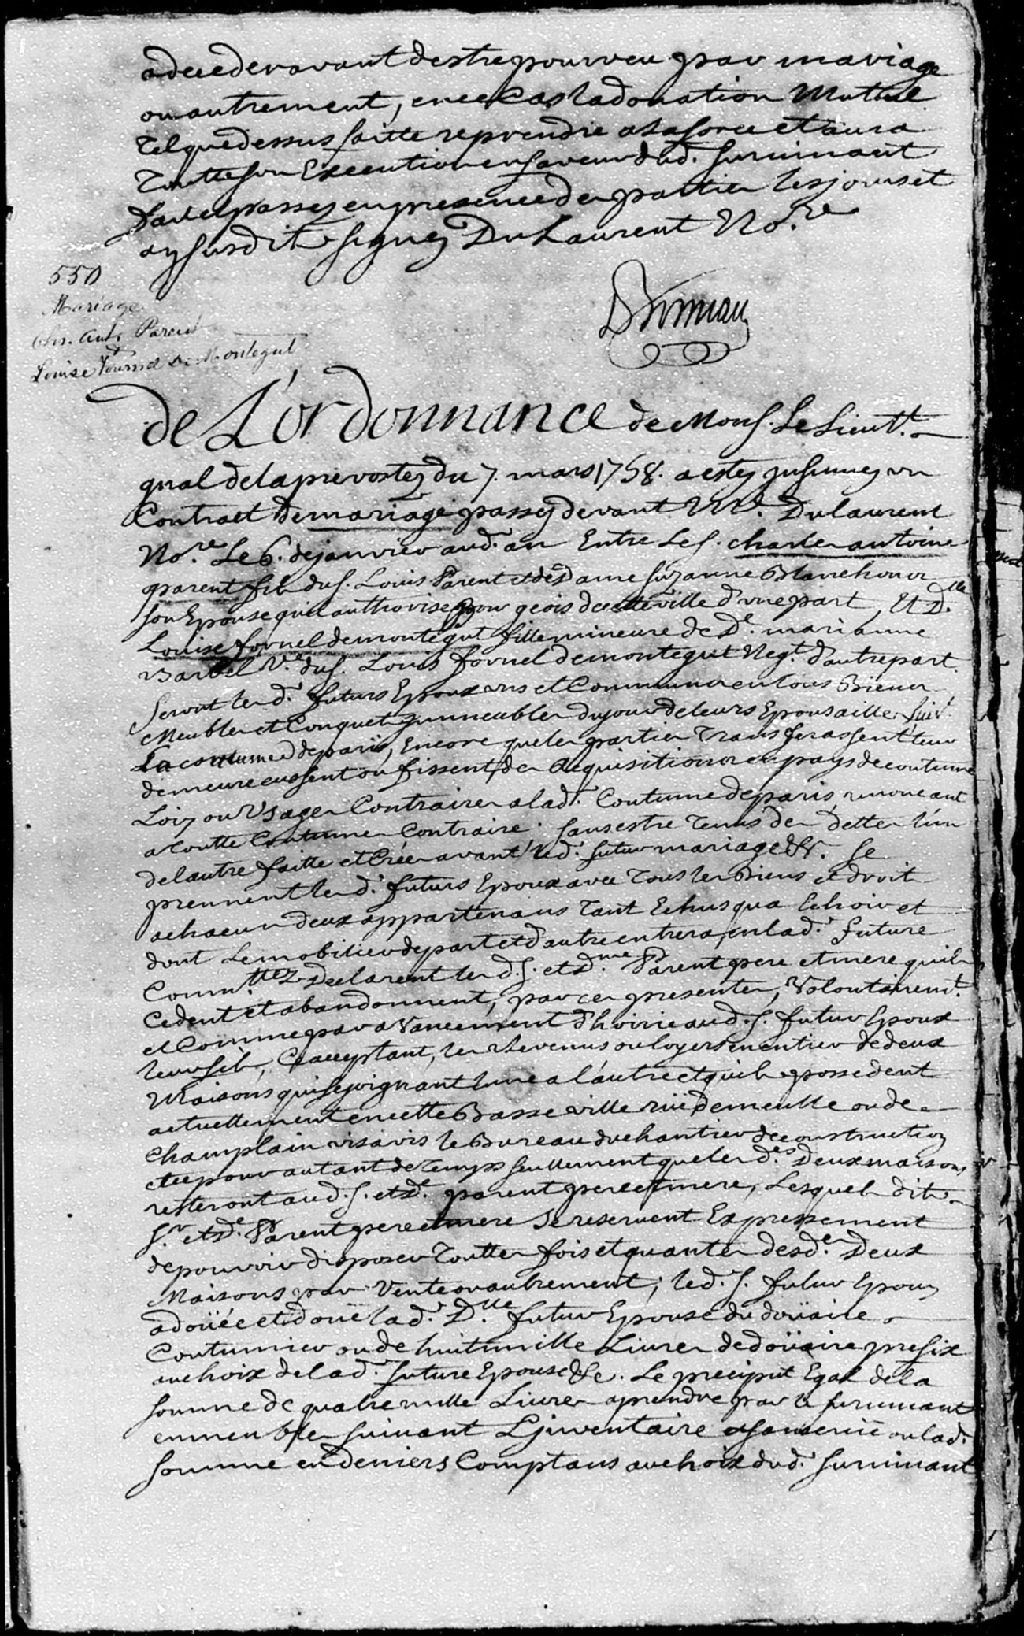 a deceder avant destre pourveu par mariage
ou autrement, en ce Cas la donation Mutuel
Tel que dessus faitte reprendre a sa force et aura
Toutte son Execution en faveur dud. survivant
fait et passez en presence des parties les jours et
an susdit signez DuLaurent No.re
550
Mariage
chs. ant. Parent
Louise Fournel de Montegut
de L'ordonnance de Mons. Le Lieut.t
gnal de la prevostez du 7. mars 1758. a estez insinuez un
Contract de mariage passez devant Me. Dulaurent
No.re Le 6. de janvier aud. an Entre Le s. charles antoine
parent fils du s. Louis Parent et de dame Suzanne Blanchon
son Epouse quil authorise Bourgeois de cette ville d'une part, Et D.lle
Louise fornel de montegut fille mineure de D.e marianne
Barbel V.e du s. Louis fornel de montegut Neg.t d'autre part.
Seront les d. futurs Epoux uns et Communs en tous Biens
Meubles et Conquets immeubles du jour de leurs Epousailles suiv.t
La coutume de paris, Encore que les parties Transferassent leur
demeure eussent ou fissent des acquisitions en pays de coutume
Loix ou Usages Contraires a lad. Coutume de paris renonceant
a toutte Coutumes Contraire. sans estre Tenus des dettes l'un
de l'autre faitte et Créés avant led. futur mariage &c. se
prennent les d. futurs Epoux avec Tous les Biens et droit
a chacun deux appartenans Tant Echus qua Echoir et
dont Le mobilier de part et d'autre entrera, en lad. future
Comm.tez Declarent les d. s. et d.me Parent pere et mere quils
Cedent et abandonnent, par ces presentes, Volontairem.t
et Comme par avancement d'hoirie aud. s. futur Epoux
leur fils, Ce acceptant, les Revenus ou loyers en entier de deux
Maisons qui se joignant l'une a l'autre et quils possedent
actuellement en cette Basse ville rüe demeulle ou de
Champlain vis a vis le Bureau du chantier de construction
et ce pour autant de temps seullement que les d.es Deux maisons
resteront aud. s. et d.e parent pere et mere, Lesquels dits
S.r et d.e Parent pere et mere se reservent Expressement
de pouvoir disposer Touttes fois et quantes desd.es Deux
Maisons par Vente ou autrement; led. s. futur Epoux
a doüée et doüe lad. D.lle futur Epouse du doüaire
Coutumier ou de huit mille Livres de doüaire prefix
au choix de lad. future Epouse &c. Le preciput Egal de la
somme de quatre mille Livres a prendre par le survivant
en meubles suivant L'inventaire et sans criüe ou lad.
somme en deniers Comptans au choix dud. survivant